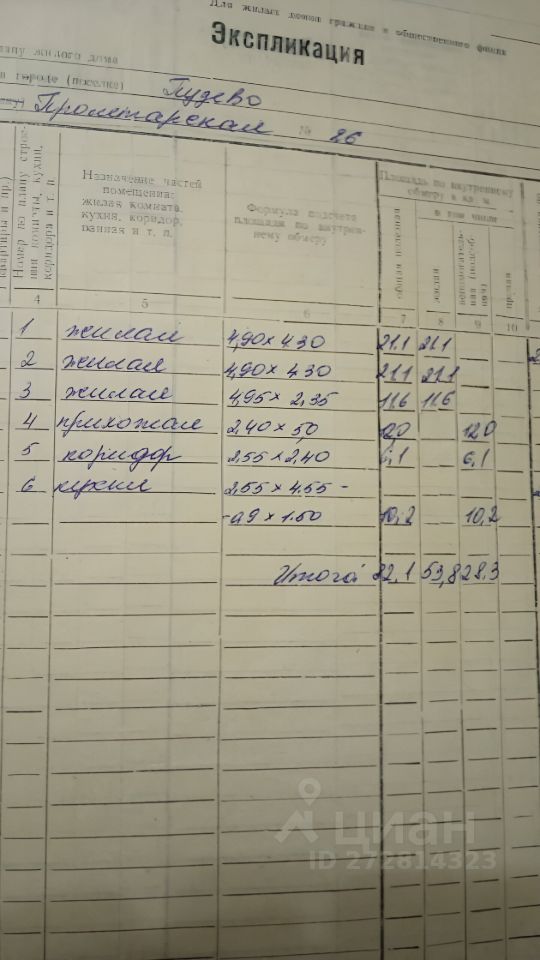 Для жилых домов гражданского и общественного фонда
Экспликация
плану жилого дома
городе (поселке) Пудево
Пролетарская № 26
квартиры и пр.)
Номер по плану строения комнаты, кухни, коридора и т. п.
Назначение частей помещения: жилая комната, кухня, коридор, ванная и т. п.
Формула подсчета площади по внутреннему обмеру
Площадь по внутреннему обмеру в кв. м.
в том числе
общая полезная
жилая
вспомогательная (подсобная)
прочая
4 5 6 7 8 9 10
1 жилая 4,90 × 4.30 21.1 21.1
2 жилая 4,90 × 4,30 21.1 21.1
3 жилая 4,95 × 2,35 11.6 11.6
4 прихожая 2,40 × 5,0 12.0 12.0
5 коридор 2.55 × 2,40 6,1 6,1
6 кухня 2,55 × 4,55 -
- 0,9 × 1.50 10,2 10,2
Итого: 82,1 53,8 28.3
циан
ID 272814323